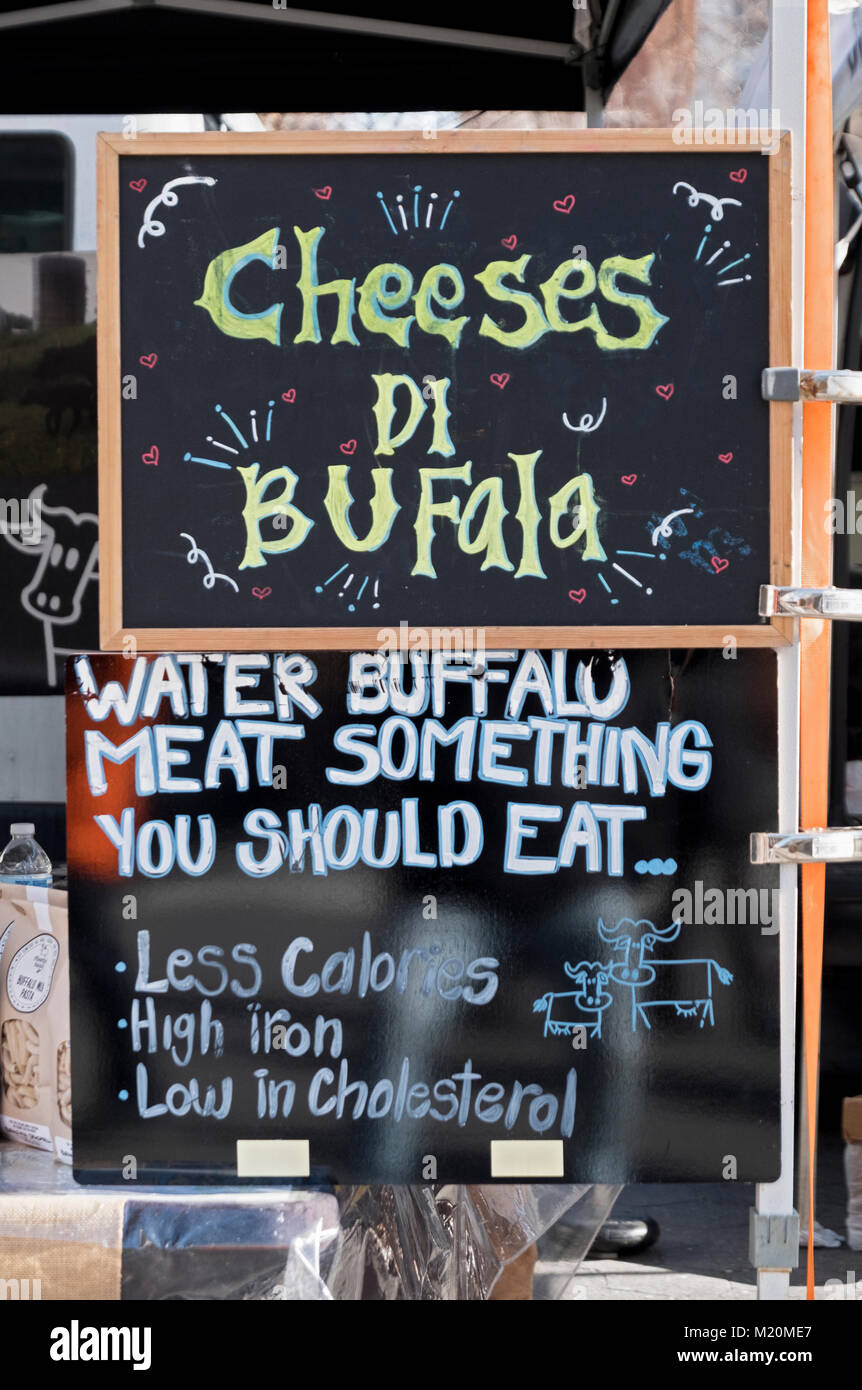 Cheeses
Di
Bufala
WATER BUFFALO
MEAT SOMETHING
YOU SHOULD EAT...
• Less Calories
• High iron
• Low in Cholesterol
BUFFALO MILK
PASTA
a alamy stock photo
Image ID: M20ME7
www.alamy.com